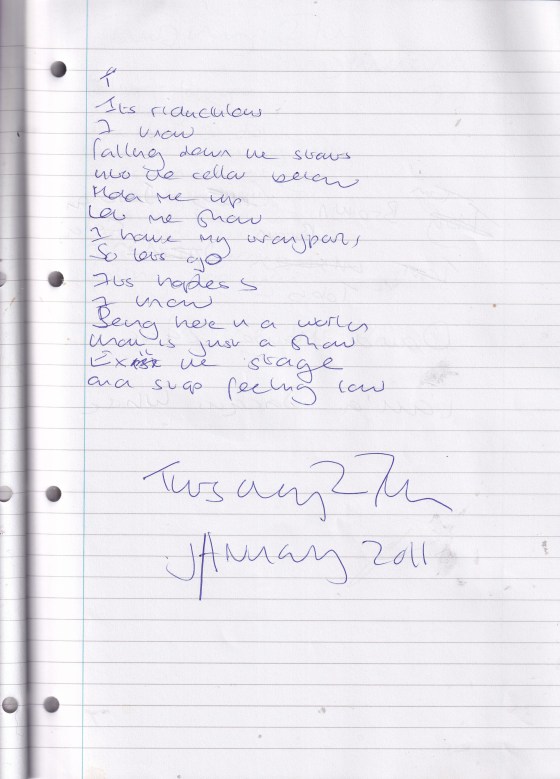 Its ridiculow
I know
falling down the stairs
into the cellar below
Hold me up
Let me show
I have my
So lets go
Its hopless
I know
Being here in a world
that is just a show
Exit the stage
and stop feeling low
27th
JANuary 2011